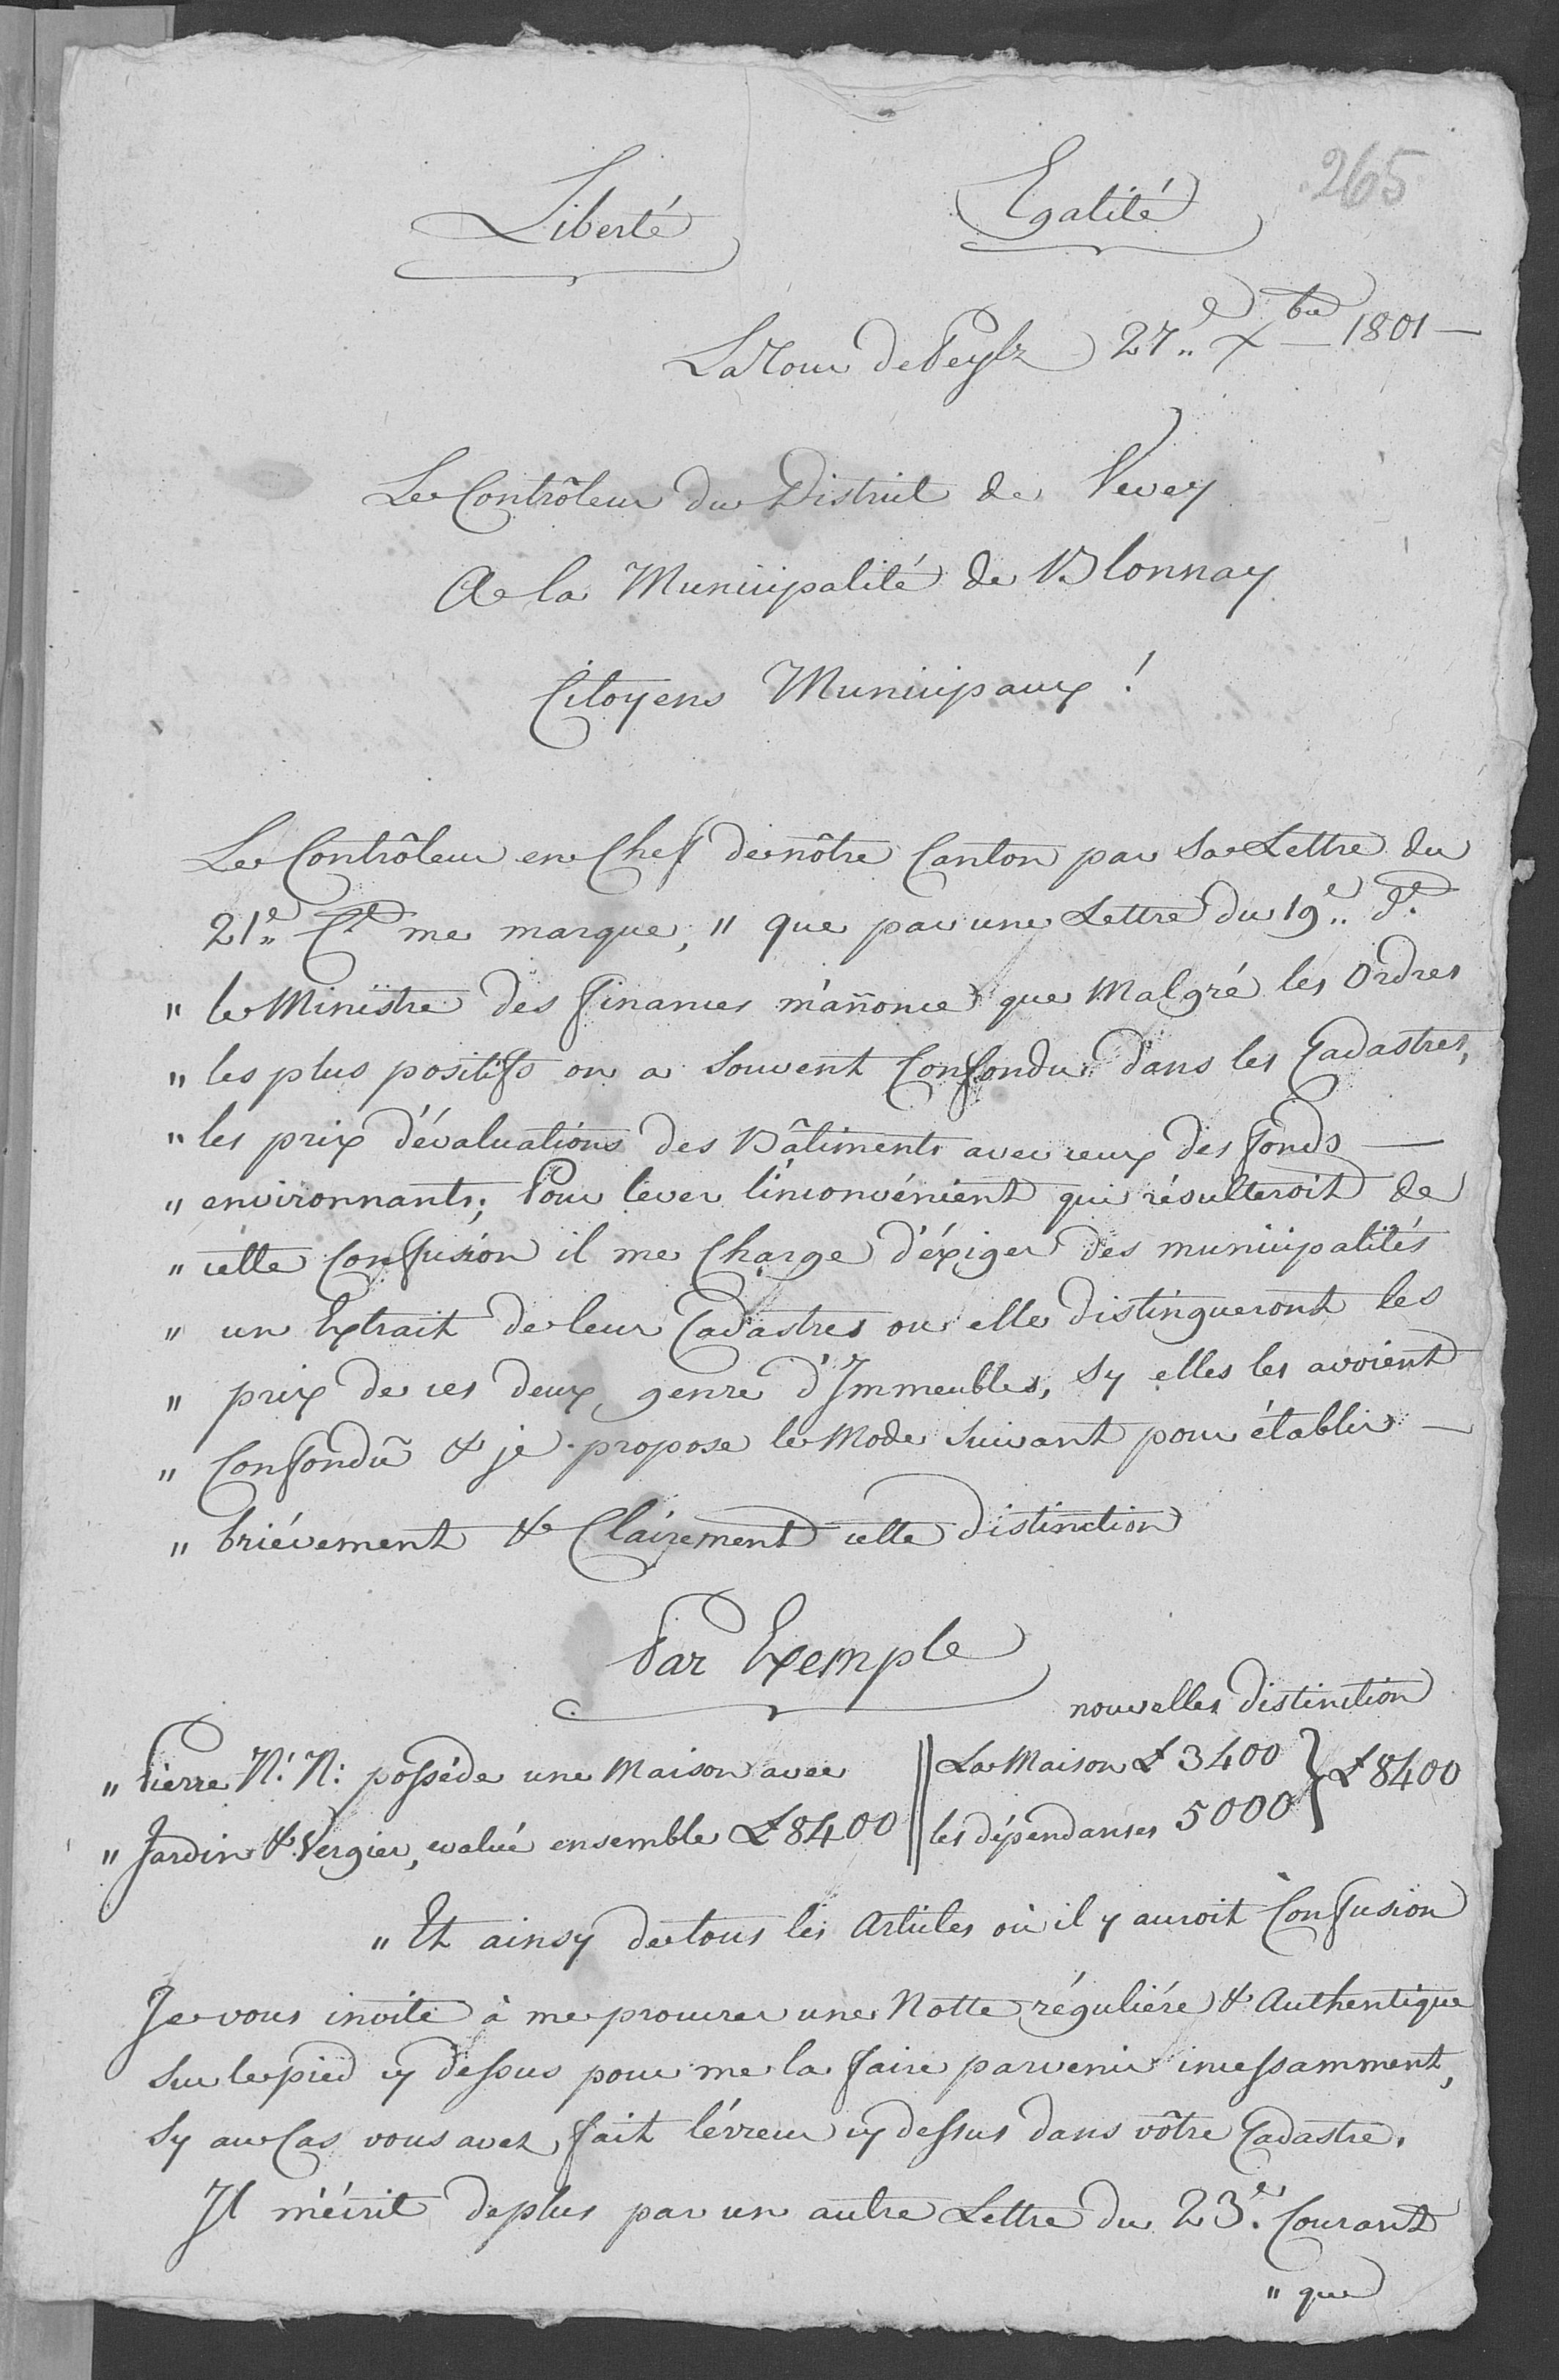 265
Liberté Egalité
La Tour de Peylz 27.e Xbre 1801 —
Le Contrôleur du District de Vevey
A la Municipalité de Blonnay
Citoyens Municipaux !
Le Contrôleur en Chef de nôtre Canton par sa Lettre du
21.e Ct me marque, " que par une Lettre du 19.e d.e
" le Ministre des finances m'anonce que Malgré les Ordres
" les plus positifs on a souvent Confondu dans les Cadastres,
" les prix d'évaluations des Bâtiments avec ceux des fonds —
" environnants; Pour lever l'inconvénient qui résulteroit de
" cette Confusion il me Charge d'éxiger des municipalités
" un Extrait de leur Cadastres ou elle distingueront les
" prix de ces deux genre d'Immeubles, sy elles les avoient
" Confondû & je propose le Mode suivant pour établir —
" briévement & Clairement cette distinction
Par Exemple
nouvelles distinction
" Pierre N: N: posséde une Maison avec || La Maison £ 3400 } £ 8400
" Jardin & Vergier, evalué ensemble £ 8400 || les dépendanses 5000
" Et ainsy de tous les Articles où il y auroit Confusion
Je vous invite à me procurer une Notte réguliére & Authentique
sur le pied cy dessus pour me la faire parvenir incessamment,
sy au Cas vous avez fait l'érreur cy dessus dans vôtre Cadastre.
Il m'écrit de plus par un autre Lettre du 23.e Courant
" que